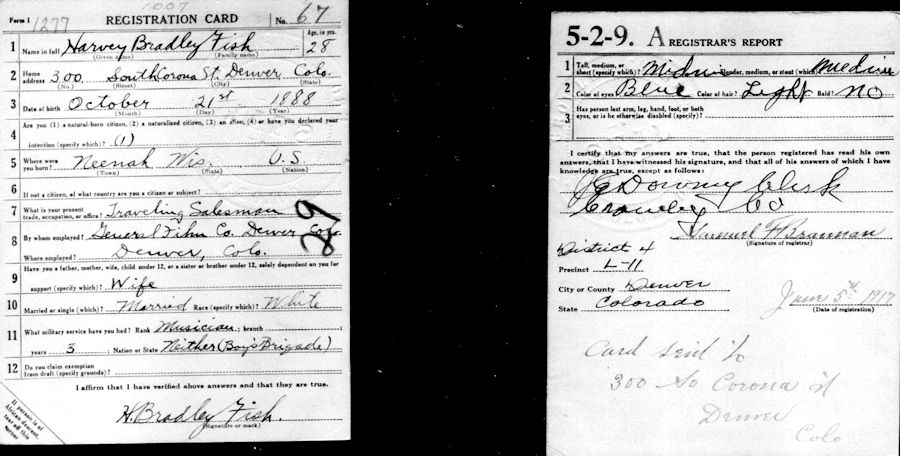 Form 1 1277 1007 REGISTRATION CARD No. 67
1 Name in full Harvey Bradley Fish Age, in yrs. 28
(Given name) (Family name)
2 Home address 300 South Corona St. Denver Colo.
(No.) (Street) (City) (State)
3 Date of birth October 21st 1888
(Month) (Day) (Year)
4 Are you (1) a natural-born citizen, (2) a naturalized citizen, (3) an alien, (4) or have you declared your
intention (specify which)? (1)
5 Where were you born? Neenah Wis. U.S.
(Town) (State) (Nation)
6 If not a citizen, of what country are you a citizen or subject?
7 What is your present trade, occupation, or office? Traveling Salesman
29
8 By whom employed? General Film Co. Denver Colo.
Where employed? Denver, Colo.
9 Have you a father, mother, wife, child under 12, or a sister or brother under 12, solely dependent on you for
support (specify which)? Wife
10 Married or single (which)? Married Race (specify which)? White
11 What military service have you had? Rank Musician; branch
years 3; Nation or State Neither (Boy's Brigade)
12 Do you claim exemption from draft (specify grounds)?
I affirm that I have verified above answers and that they are true.
H. Bradley Fish.
(Signature or mark)
If person is of
African descent,
tear off this
corner
5-2-9. A REGISTRAR'S REPORT
1 Tall, medium, or short (specify which)? Medium Slender, medium, or stout (which)? Medium
2 Color of eyes? Blue Color of hair? Light Bald? No
3 Has person lost arm, leg, hand, foot, or both
eyes, or is he otherwise disabled (specify)?
I certify that my answers are true, that the person registered has read his own
answers, that I have witnessed his signature, and that all of his answers of which I have
knowledge are true, except as follows:
Downing Clerk
Crowley Co
Samuel F Brannan
(Signature of registrar)
District 4
Precinct L-11
City or County Denver
State Colorado June 5th 1917
(Date of registration)
Card sent to
300 So Corona St
Denver
Colo